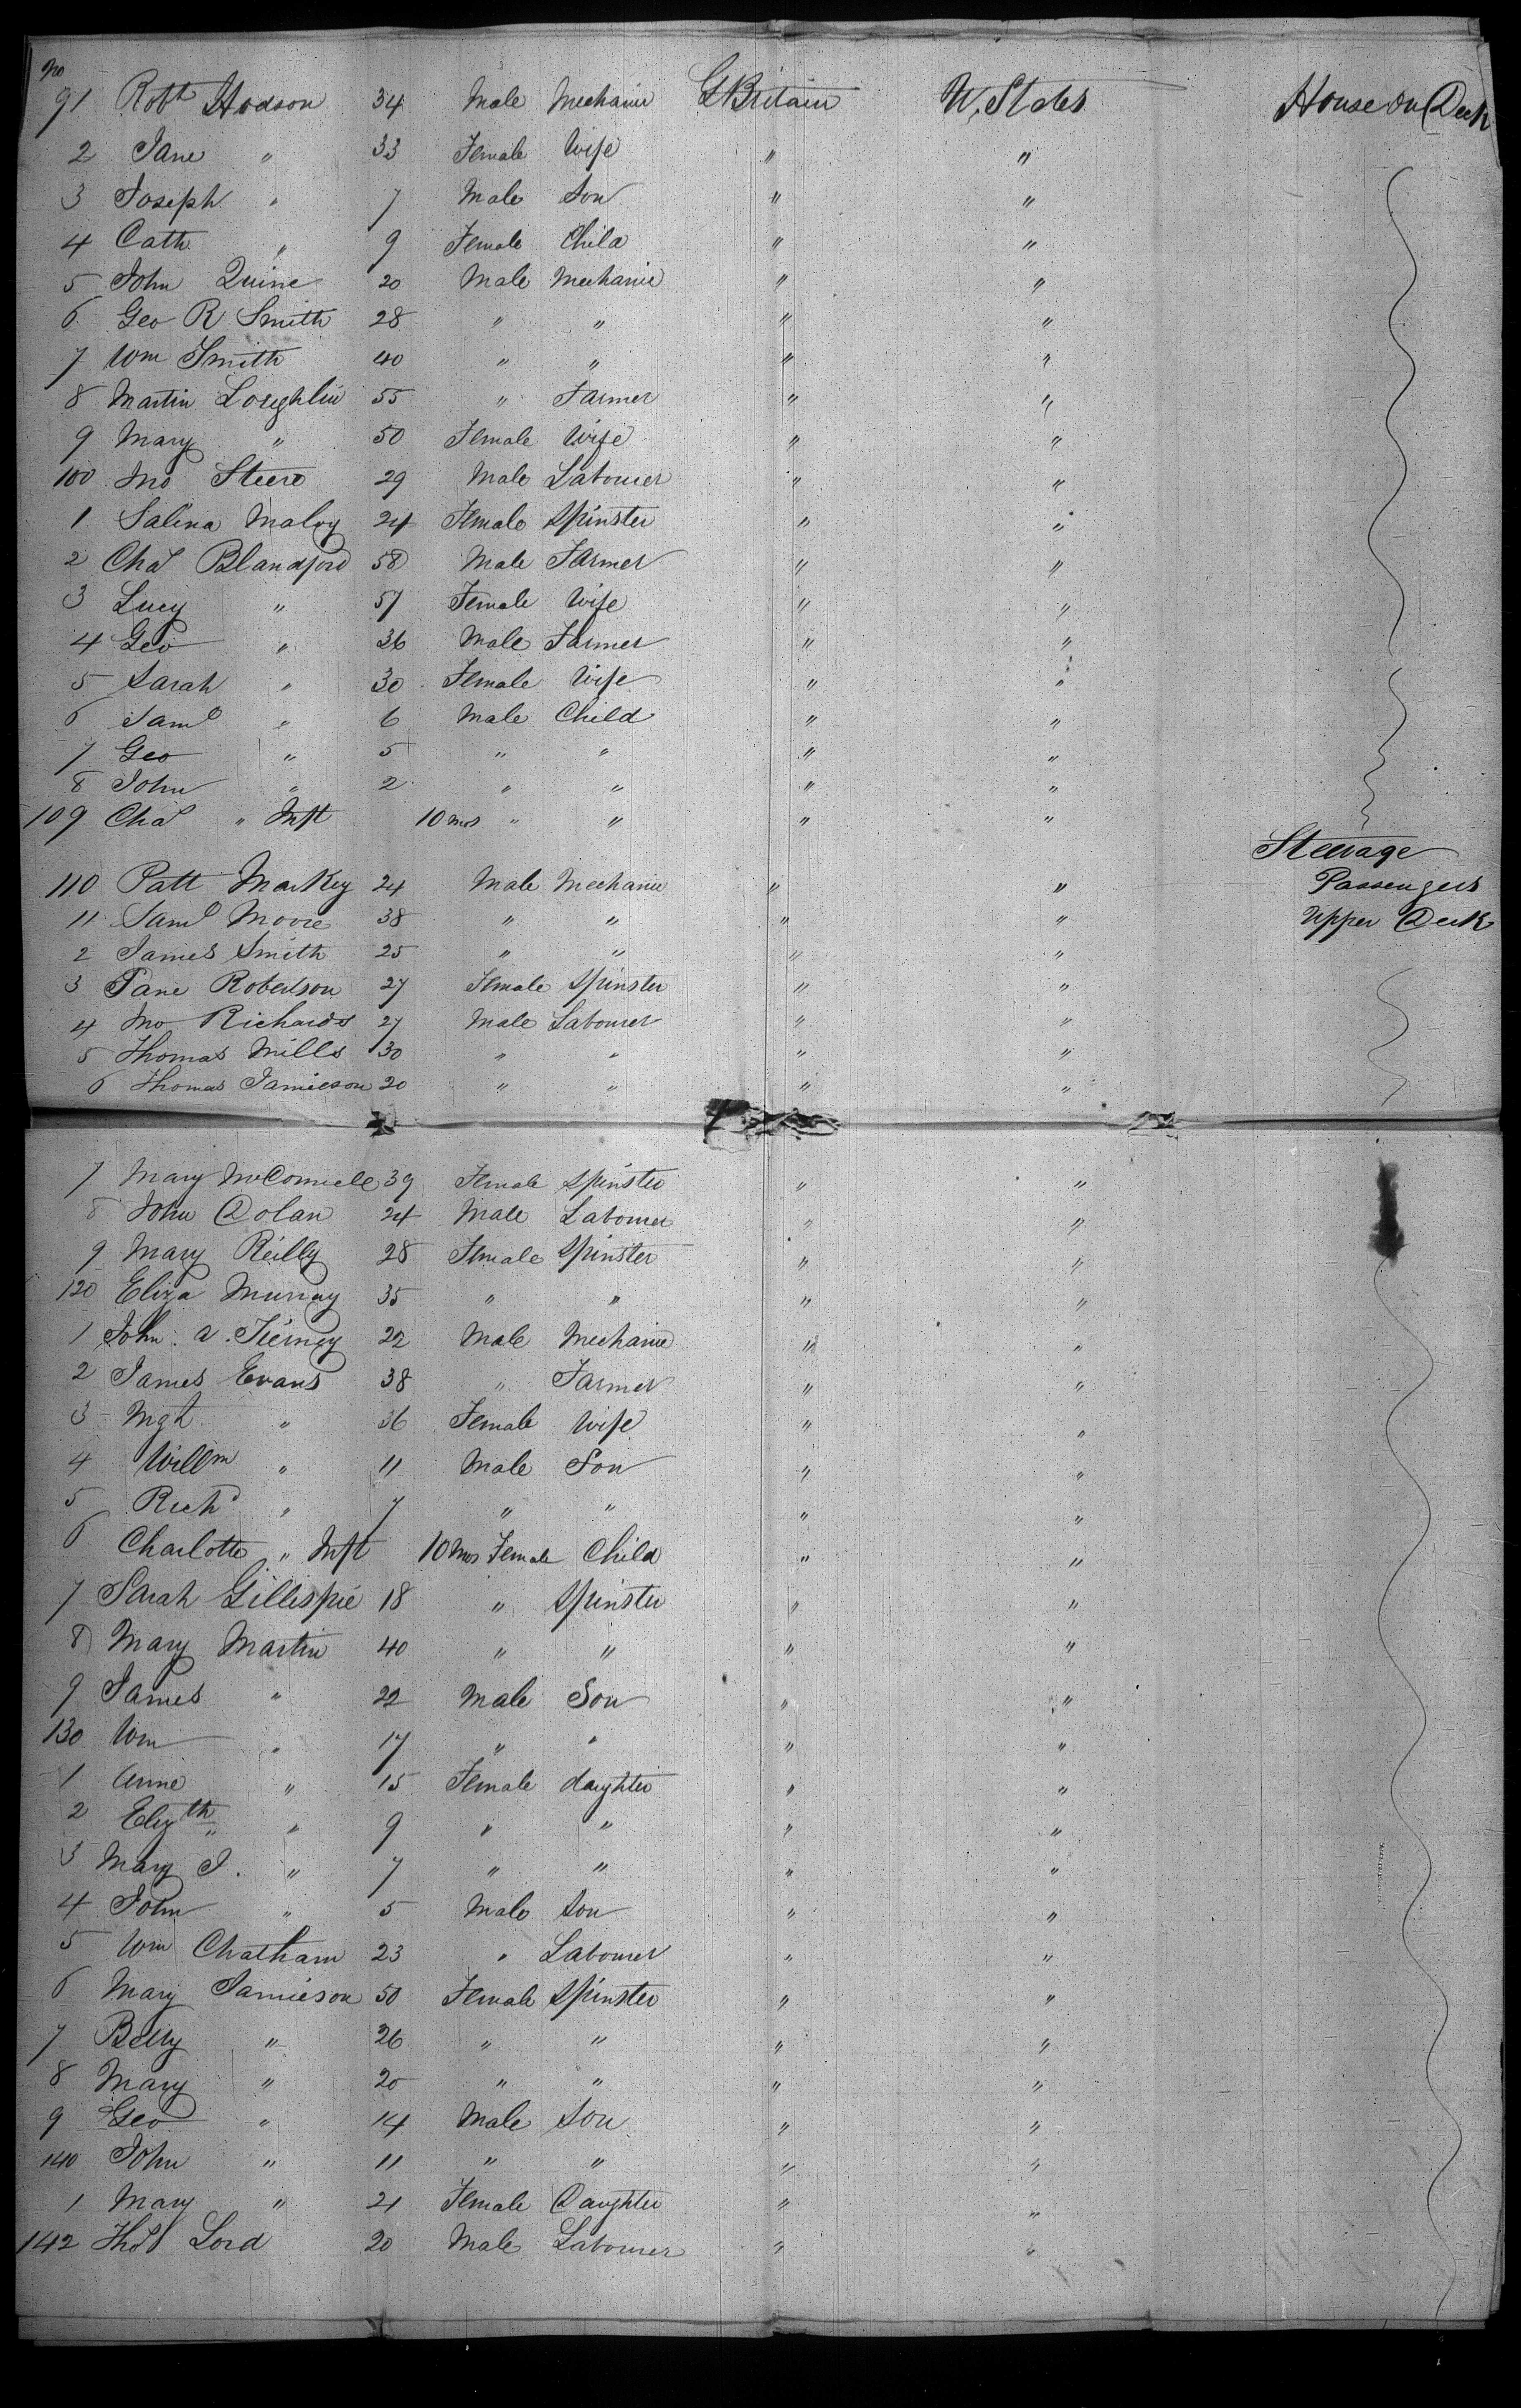 No
91 Robt Hodson 34 Male Mechanic G Britain U. States House on Deck
2 Jane " 33 Female Wife " "
3 Joseph " 7 Male Son " "
4 Cath " 9 Female Child " "
5 John Quine 20 Male Mechanic " "
6 Geo R Smith 28 " " " "
7 Wm Smith 40 " " " "
8 Martin Loughlin 55 " Farmer " "
9 Mary " 50 Female Wife " "
100 Jno Steere 29 Male Labourer " "
1 Salina Maloy 24 Female Spinster " "
2 Chas Blandford 58 Male Farmer " "
3 Lucy " 57 Female Wife " "
4 Geo " 36 Male Farmer " "
5 Sarah " 30 Female Wife " "
6 Saml " 6 Male Child " "
7 Geo " 5 " " " "
8 John " 2 " " " "
109 Chas " Inft 10 mos " " " "
Steerage
110 Patt Markey 24 Male Mechanic " " Passengers
11 Saml Moore 38 " " " " Upper Deck
2 James Smith 25 " " " "
3 Jane Robertson 27 Female Spinster " "
4 Jno Richards 27 Male Labourer " "
5 Thomas Mills 30 " " " "
6 Thomas Jamieson 20 " " " "
7 Mary McConnele 39 Female Spinster " "
8 John Dolan 24 Male Labourer " "
9 Mary Reilly 28 Female Spinster " "
120 Eliza Murray 35 " " " "
1 John A. Tierney 22 Male Mechanic " "
2 James Evans 38 " Farmer " "
3 Mgt " 36 Female Wife " "
4 Willm " 11 Male Son " "
5 Richd " 7 " " " "
6 Charlotte " Inft 10 mos Female Child " "
7 Sarah Gillespie 18 " Spinster " "
8 Mary Martin 40 " " " "
9 James " 22 Male Son " "
130 Wm " 17 " " " "
1 Anne " 15 Female daughter " "
2 Elizth " 9 " " " "
3 Mary J. " 7 " " " "
4 John " 5 Male Son " "
5 Wm Chatham 23 " Labourer " "
6 Mary Jamieson 50 Female Spinster " "
7 Betty " 26 " " " "
8 Mary " 20 " " " "
9 Geo " 14 Male Son " "
140 John " 11 " " " "
1 Mary " 21 Female Daughter " "
142 Thos Lord 20 Male Labourer " "